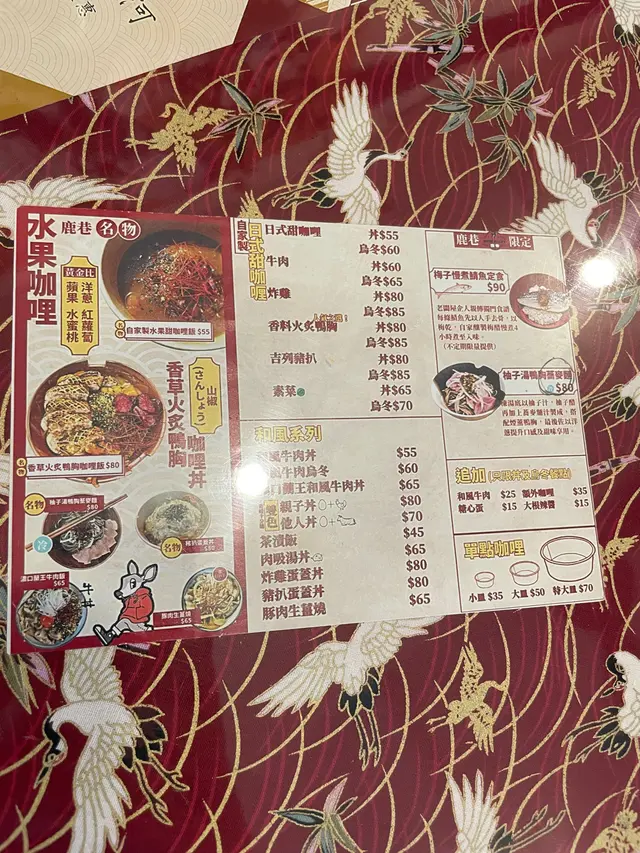 惠
河
水果咖哩
鹿巷 名物
黃金比
洋蔥 紅蘿蔔
蘋果 水蜜桃
名物 自家製水果甜咖哩飯 $55
山椒
(さんしょう)
香草火炙鴨胸
咖哩丼
名物 香草火炙鴨胸咖哩飯 $80
名物 柚子湯鴨胸蕎麥麵
$80
冷
名物 豬扒蛋蓋丼
$80
濃口蘭王和牛肉飯
$65
牛丼
豚肉生薑燒
$65
自家製
日式甜咖哩
日式甜咖哩 丼$55
烏冬$60
牛肉 丼$60
烏冬$65
炸雞 丼$80
烏冬$85
香料火炙鴨胸 丼$80
烏冬$85
吉列豬扒 丼$80
烏冬$85
素菜 丼$65
烏冬$70
和風系列
和風牛肉丼 $55
和風牛肉烏冬 $60
蘭王和風牛肉丼 $65
親子丼 $80
他人丼 $70
茶漬飯 $45
肉吸湯丼 $65
炸雞蛋蓋丼 $80
豬扒蛋蓋丼 $80
豚肉生薑燒 $65
鹿巷 限定
梅子慢煮鯖魚定食
$90
(不定期限量提供)
柚子湯鴨胸蕎麥麵
$80
追加
和風牛肉 $25 額外咖哩 $35
糖心蛋 $15 大根辣醬 $15
單點咖哩
小皿 $35 大皿 $50 特大皿 $70